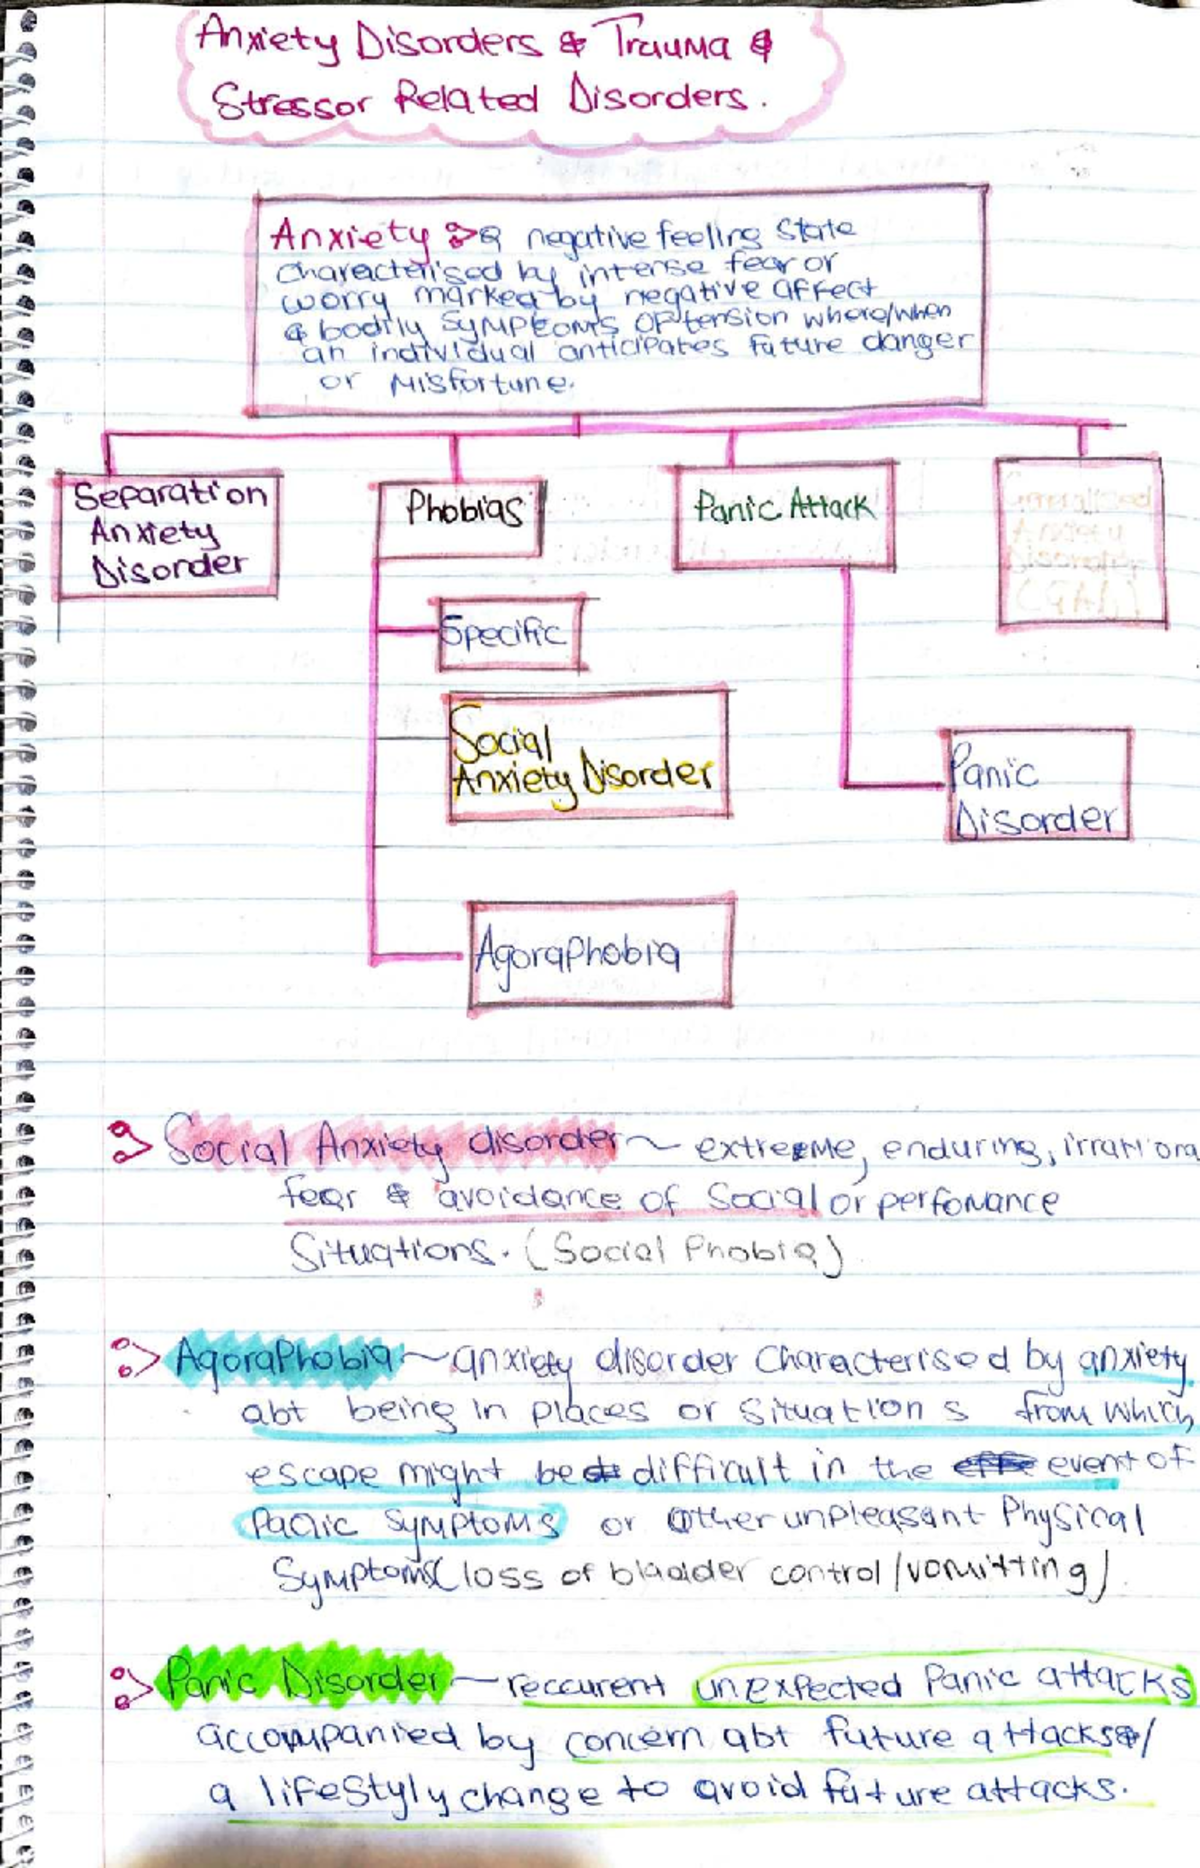 Anxiety Disorders & Trauma &
Stressor Related Disorders.
Anxiety a negative feeling state
characterised by intense fear or
worry marked by negative affect
& bodily symptoms of tension where/when
an individual anticipates future danger
or misfortune.
Separation
Anxiety
Disorder
Phobias
Panic Attack
Anxiety
(GAD)
Specific
Social
Anxiety Disorder
Panic
Disorder
Agoraphobia
Social Anxiety disorder ~ extreme, enduring, irrationa
fear & avoidance of social or perfomance
situations. (Social Phobia)
Agoraphobia ~ anxiety disorder characterised by anxiety
abt being in places or situations from which
escape might be difficult in the event of
panic symptoms or other unpleasant physical
symptoms (loss of bladder control/vomitting)
Panic Disorder ~ reccurent unexpected panic attacks
accompanied by concern abt future attacks &/
a lifestyly change to avoid future attacks.